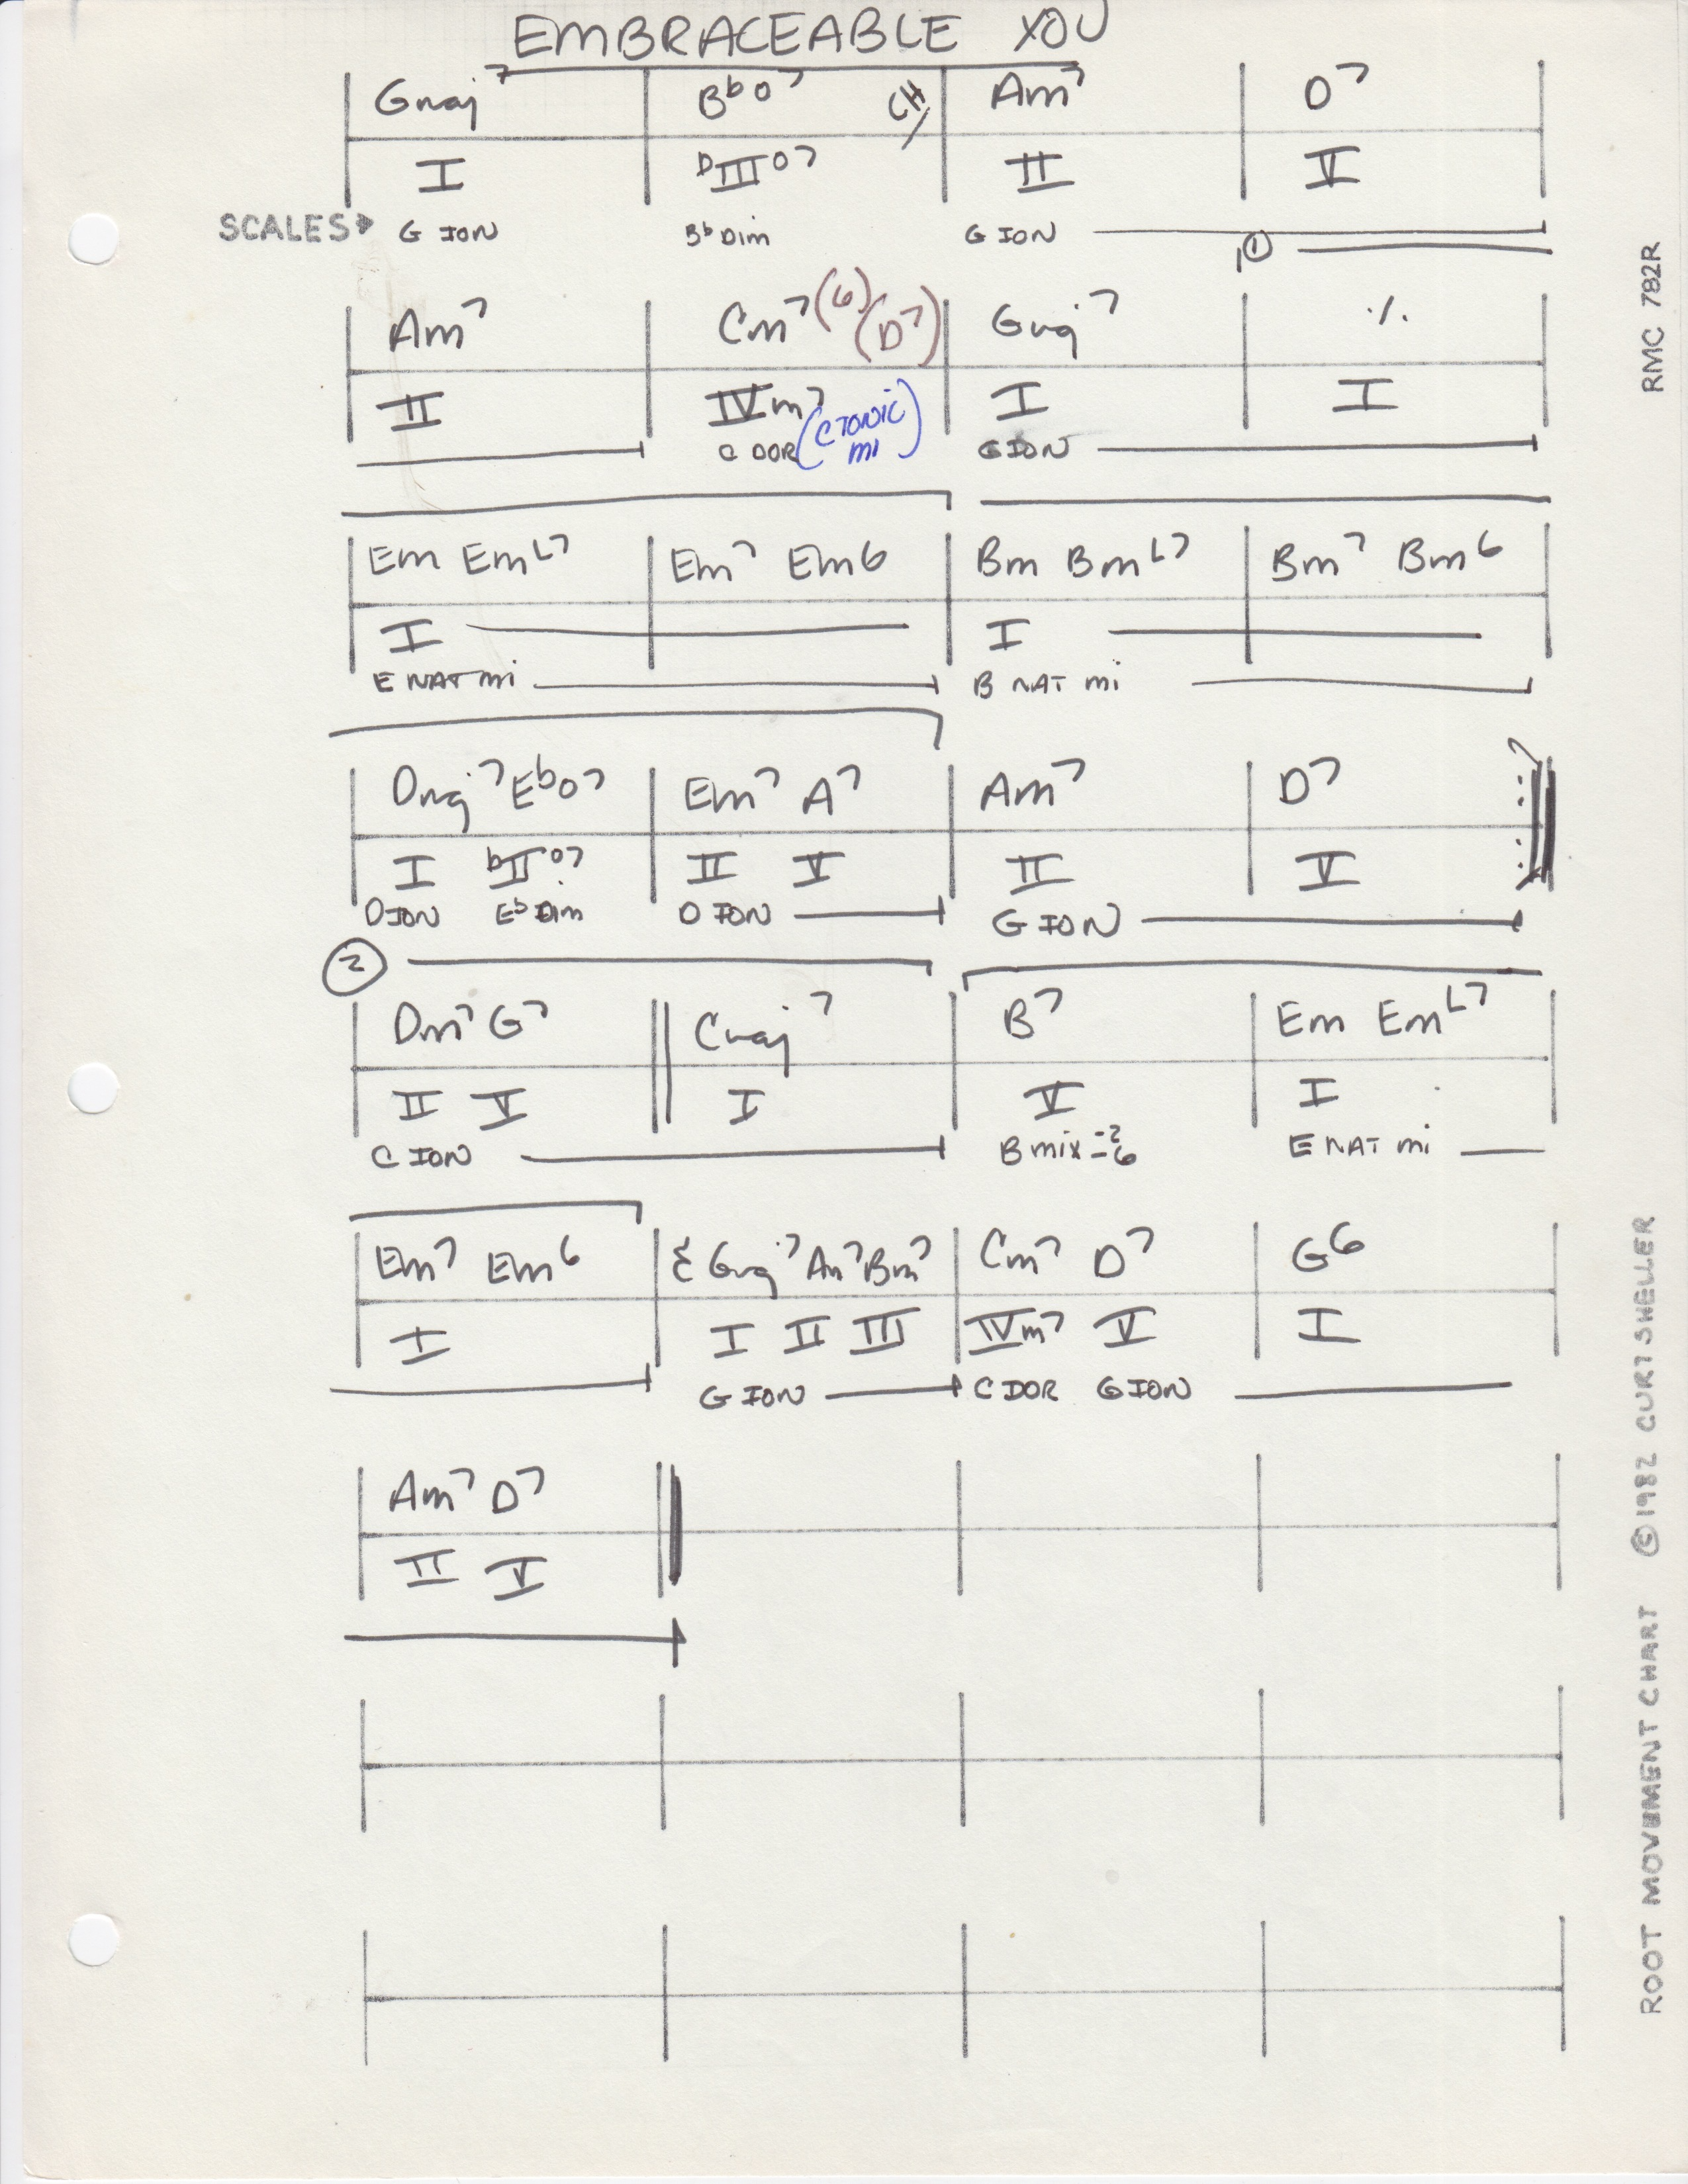 EMBRACEABLE YOU
Gmaj7 Bbo7 Am7 D7
I bIIIo7 II V
SCALES G ION Bb Dim G ION
1
Am7 Cm7 (6) (D7) Gmaj7 ٪
II IVm7 I I
C DOR (C TONIC mi) G ION
Em EmL7 Em7 Em6 Bm BmL7 Bm7 Bm6
I I
E NAT mi B NAT mi
Dmaj7 Ebo7 Em7 A7 Am7 D7
I bIIo7 II V II V
D ION Eb Dim D ION G ION
2
Dm7 G7 Cmaj7 B7 Em EmL7
II V I V I
C ION B mix -2 -6 E NAT mi
Em7 Em6 Gmaj7 Am7 Bm7 Cm7 D7 G6
I I II III IVm7 V I
G ION C DOR G ION
Am7 D7
II V
RMC 782R
ROOT MOVEMENT CHART ©1982 CURT SHELLER